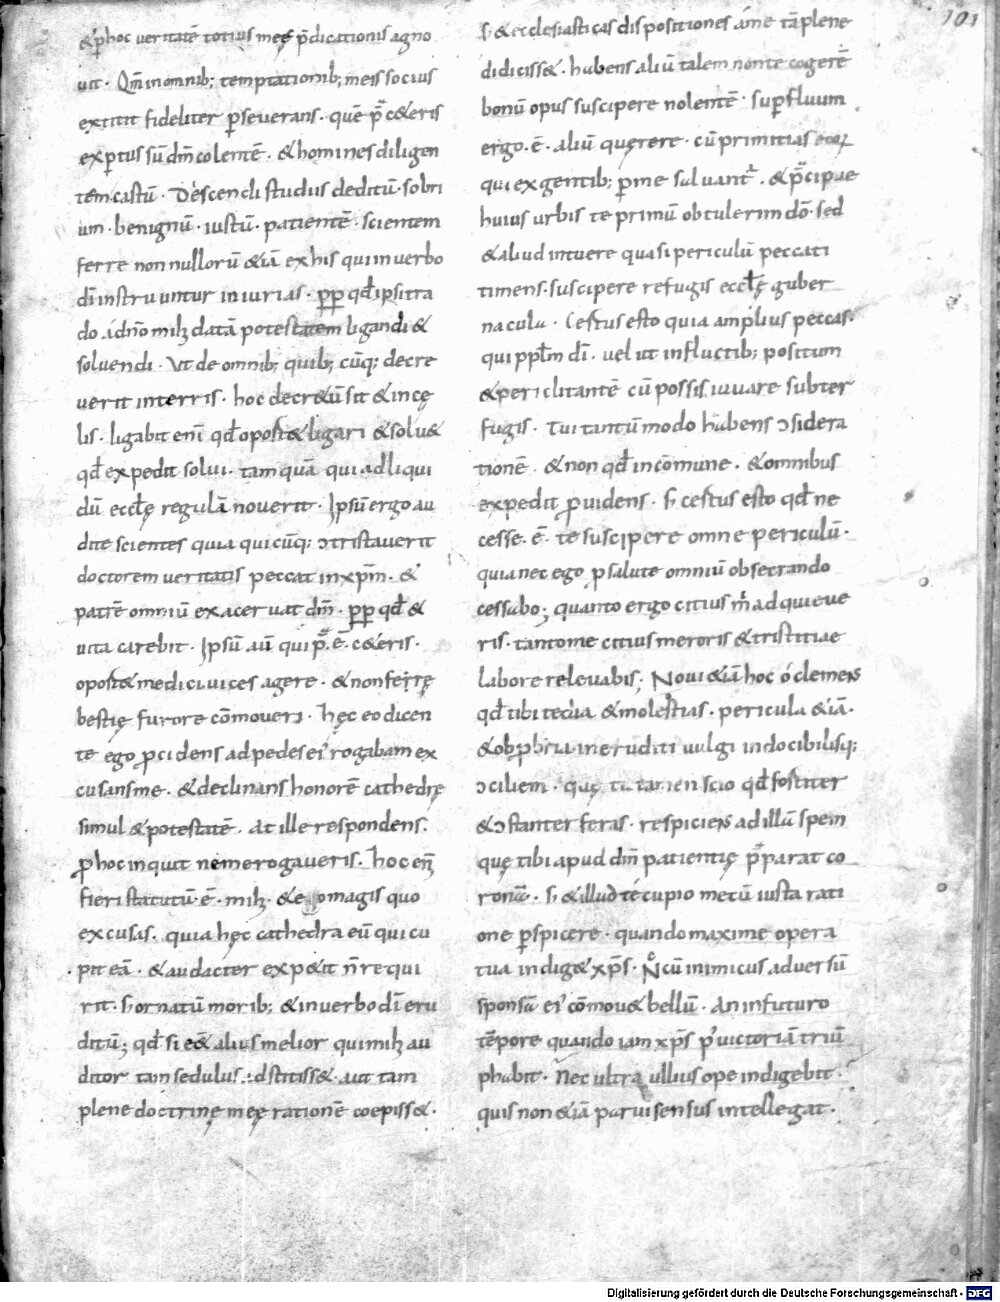 &p hoc veritatē totius meę p̄dicationis agno
uit · Qm̄ in omnib; temptationib; meis socius
extitit fideliter pseuerans · quē p̄ c&eris
exptus sū dm̄ colentē · & homines diligen
tem castū · Discendi studiis deditū · sobri
um · benignū · iustū · patientē · scientem
ferre non nullorū &iā ex his qui in uerbo
dī instruuntur iniurias · pp qđ ipsi tra
do a dn̄o mihi datā potestatem ligandi &
soluendi · Vt de omnib; quib; cūq; decre
uerit in terris · hoc decr&ū sit & in cę
lis · ligabit enī qđ oport& ligari & solu&
qđ expedit solui · tamquā qui ad liqui
dū eccłę regulā nouerit · Ipsū ergo au
dite scientes quia qui cūq; ɔtristauerit
doctorem ueritatis peccat in xpm̄ · &
patrē omniū exaceruat dm̄ · pp qđ &
uita carebit · Ipsū aū qui p̄ē c&eris ·
oport& medici uices agere · & non ferrę
bestię furore cōmoueri · hęc eo dicen
te ego pcidens ad pedes ei rogabam ex
cusans me · & declinans honorē cathedrę
simul & potestatē · At ille respondens ·
p hoc inquit ne me rogaueris · hoc enī
fieri statutū ē mihi · & eo magis quo
excusas · quia hęc cathedra eū qui cu
pit eā · & audacter exp&it n̄ requi
rit · s; ornatū morib; & in uerbo dī eru
ditū; qđ si ess& alius melior qui mihi au
ditor tam sedulus adstitiss& · aut tam
plene doctrinę meę rationē coepiss& ·
s; & ecclesiasticas dispositiones a me tā plene
didiciss& · habens aliū talem non te cogerē
bonū opus suscipere nolentē · supfluum
ergo · ē · aliū querere · cū primitias eorum
qui ex gentib; p me saluant̄ · & p̄cipue
huius urbis te primū obtulerim dō · sed
& aliud intuere quasi periculū peccati
timens · suscipere refugis eccłę guber
nacula · Certus esto quia amplius peccas ·
qui pplm̄ dī · uelut in fluctib; positum
& periclitantē cū possis iuuare subter
fugis · Tui tantū modo habens ɔsidera
tionē · & non qđ in cōmune · & omnibus
expedit puidens · s; certus esto qđ ne
cesse · ē · te suscipere omne periculū ·
quia nec ego p salute omniū obsecrando
cessabo; quanto ergo citius m̄ adquieue
ris · tanto me citius meroris & tristitiae
labore releuabis; Noui &iā hoc ó clemens
qđ tibi tedia & molestias · pericula &iā ·
& obpbria ineruditi uulgi indocibilisq;
ɔciliem · quę tu tamen scio qđ fortiter
& ɔstanter feras · respiciens ad illā spem
quę tibi apud dm̄ patientię p̄parat co
ronā · s; & illud te cupio mecū iusta rati
one pspicere · quando maxime opera
tua indig& xps̄ · Nc̄ cū inimicus aduersū
sponsā ei cōmou& bellū · An in futuro
tēpore quando iam xps̄ p uictoriā triū
phabit · Nec ultra ullius ope indigebit ·
quis non &iā parui sensus intellegat ·
101
Digitalisierung gefördert durch die Deutsche Forschungsgemeinschaft - DFG